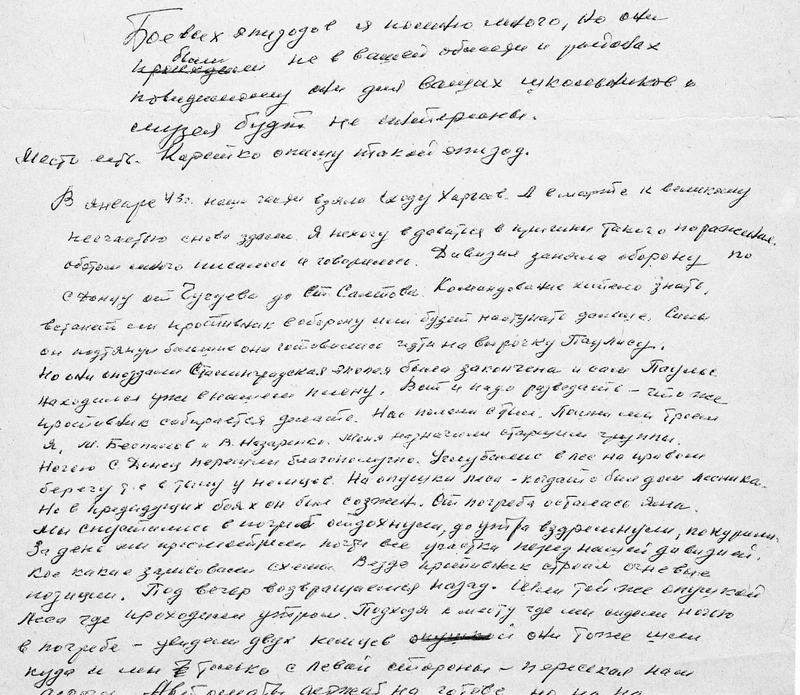 Боевых эпизодов я помню много, но они
были не в вашей области и районах
повидимому они для ваших школьников и
музея будут не интересны.
Место есть. Коротко опишу такой эпизод.
В январе 43г. наши части взяли сходу Харьков. А в марте к великому
несчастью снова здали. Я не хочу вдаваться в причины такого поражения.
об этом много писалось и говорилось. Дивизия заняла оборону по
С Донцу от Чугуева до Ст. Салтова. Командование хотело знать,
встанет ли противник в оборону или будет наступать дальше. Силы
он подтянул большие они готовились идти на выручку Паулису.
Но они опоздали Сталинградская эпопея была закончена и сам Паульс
находился уже в нашем плену. Вот и надо разведать - что же
противник собирается делать. Нас послали в тыл. Пошли мы троем
Я, М. Беспалов и В. Назаренко. Меня назначили старшим группы.
Ночью С Донец перешли благополучно. Углубились в лес на правом
берегу т.е в тылу у немцев. На опушки леса - когда то был дом лесника.
Но в предидущих боях он был созжен. От погреба осталась яма.
Мы спустились в погреб отдохнули, до утра вздремнули, покурили.
За день мы просмотрели почти все участки перед нашей дивизией.
Кое какие зарисовали схемы. Везде противник строил огневые
позиции. Под вечер возвращаемся назад. Шли той же опушкой
леса где проходили утром. Подходя к месту где мы сидели ночью
в погребе - увидели двух немцев они тоже шли
куда и мы только с левой стороны - пересекая нам
Автоматы держали на готове, но